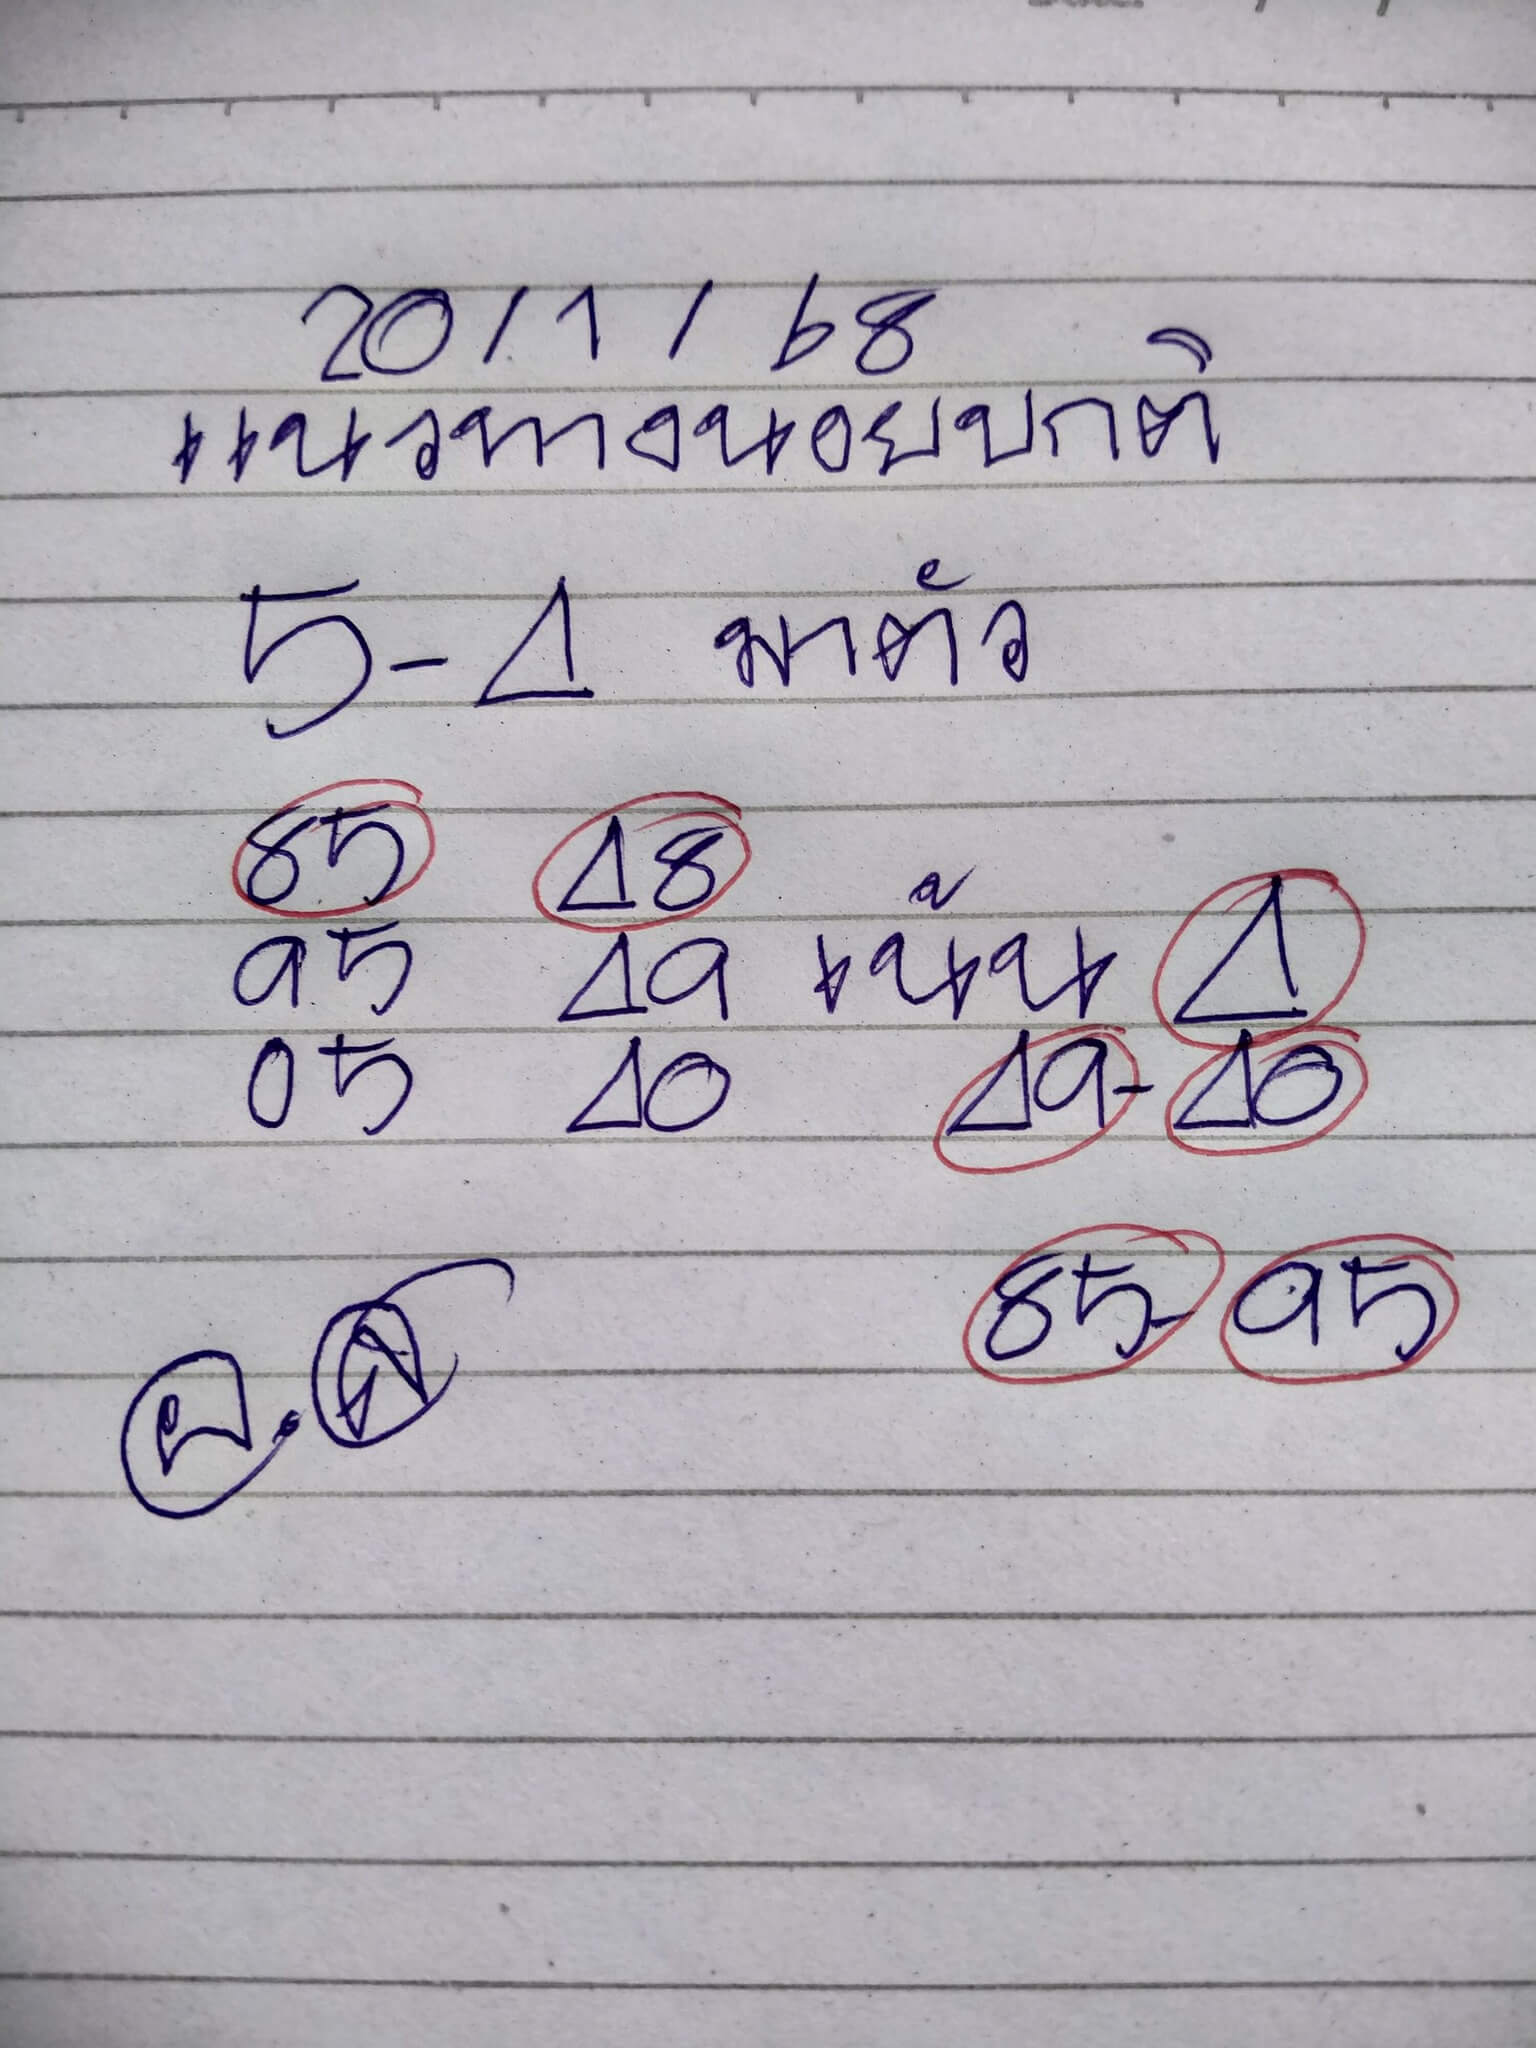 20/1/68
แนวทางนอยปกติ
5-1 มาตัว
85 18
95 19 เน้น 1
05 10 19-10
85-95